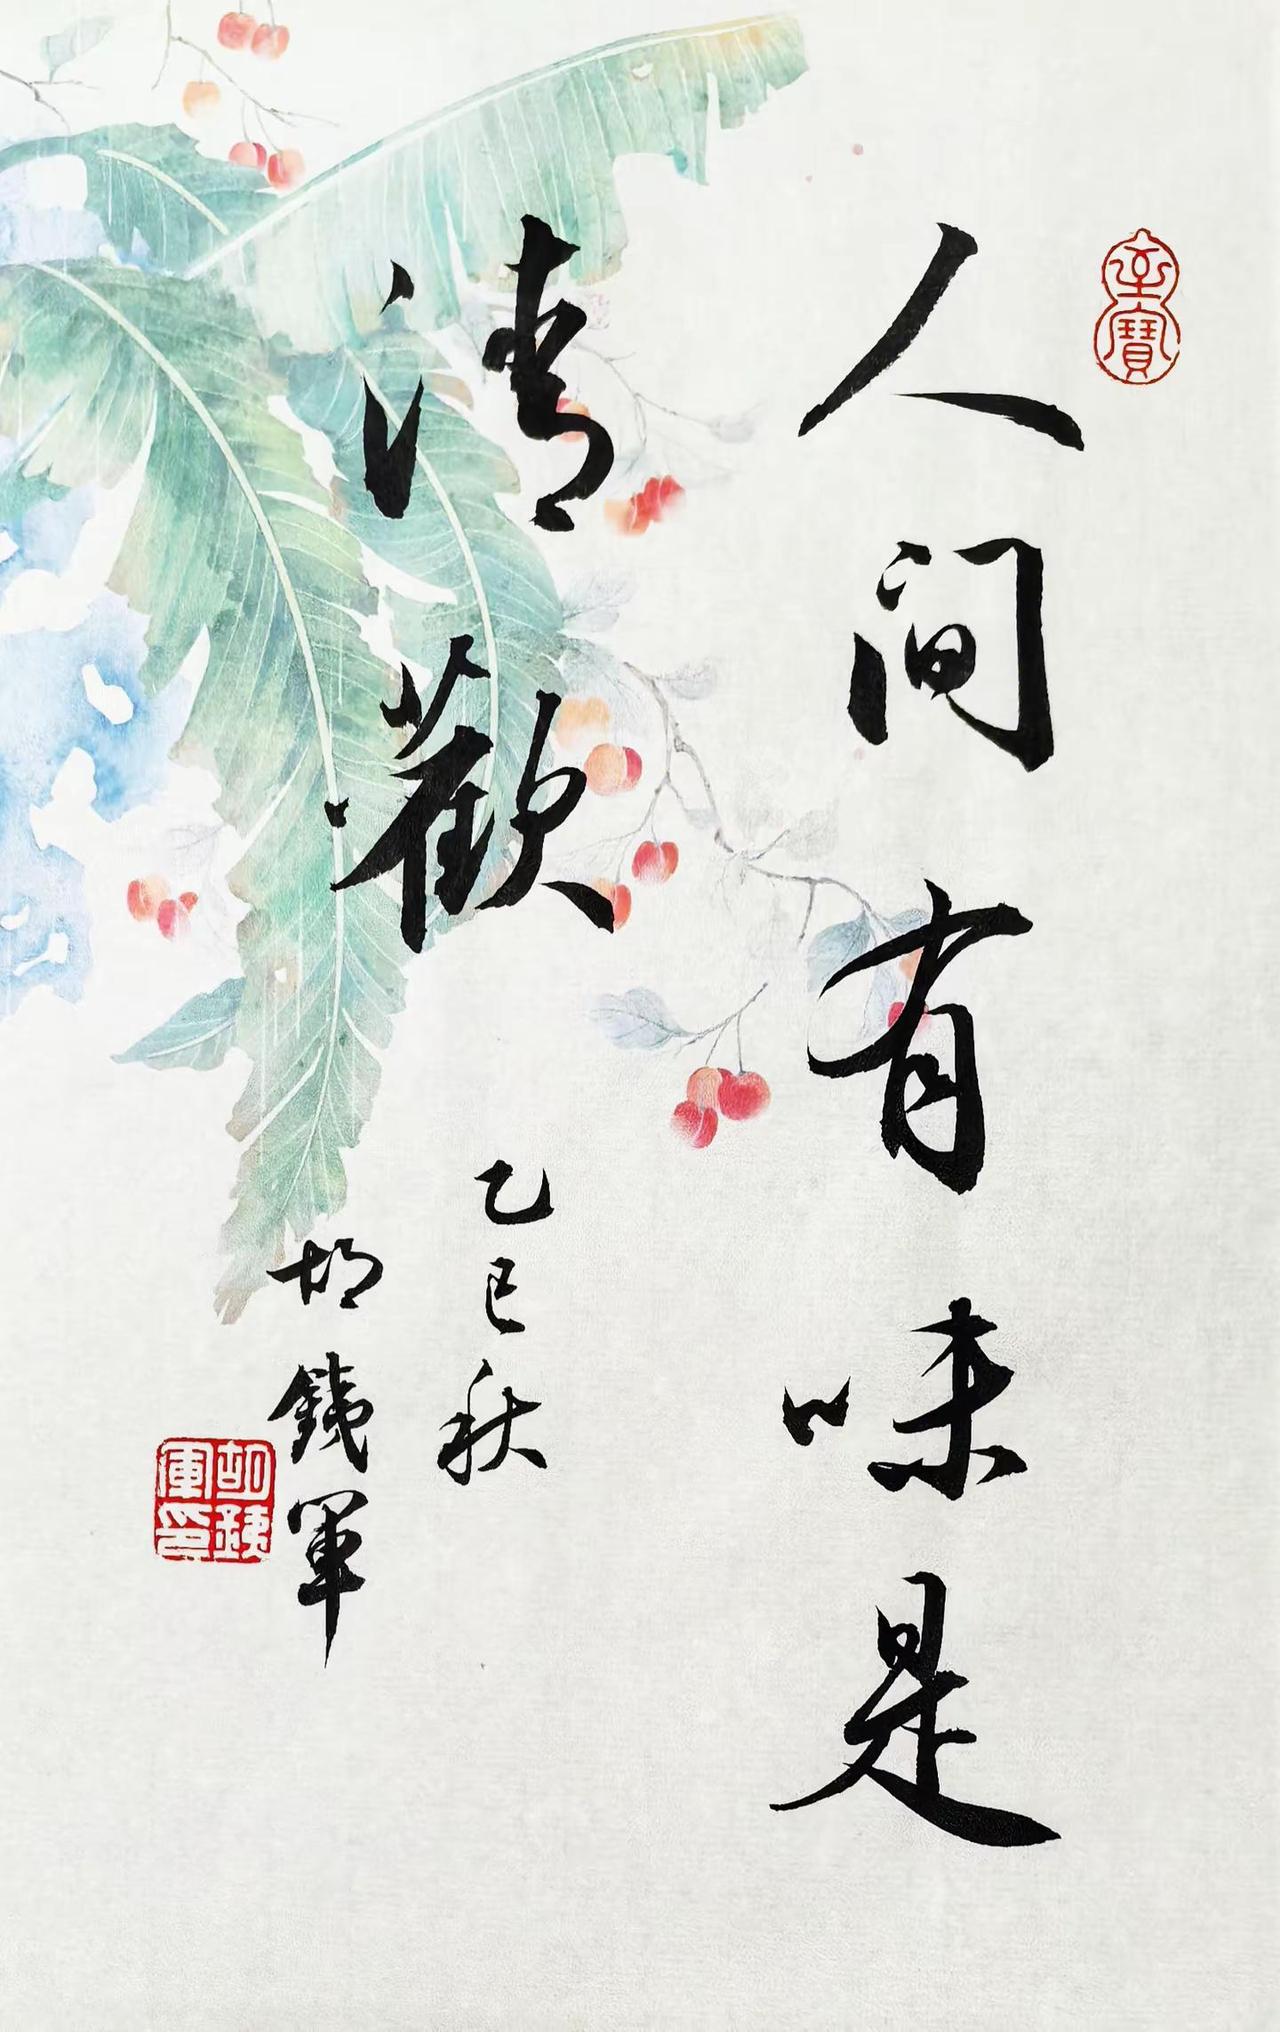 至寶
人间有味是
清歡
乙巳秋
胡銕軍
胡銕
軍印